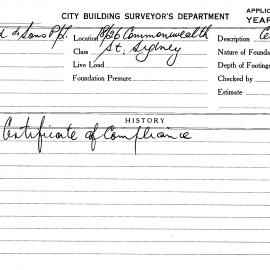 CITY BUILDING SURVEYOR'S DEPARTMENT
APPLIC
YEAR
d & Sons P/L. Location 18/26 Commonwealth Description Ce
Class St. Sydney Nature of Founda
Live Load Depth of Footings
Foundation Pressure Checked by
Estimate
HISTORY
Certificate of Compliance